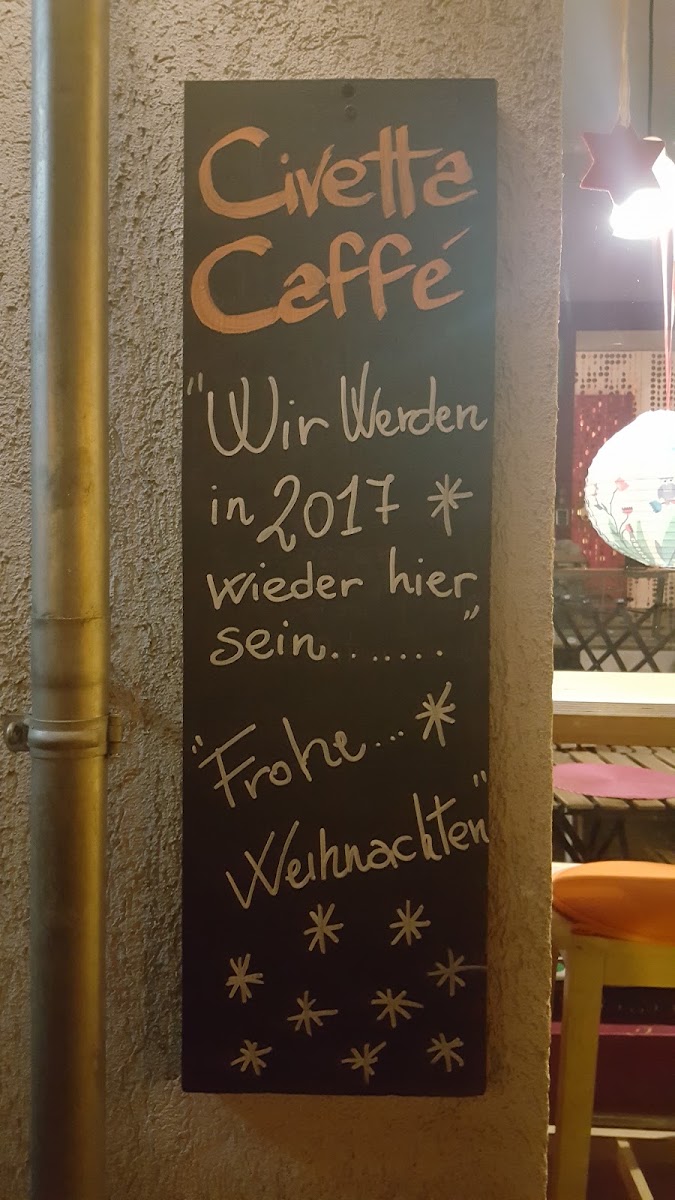 Civetta
Caffé
"Wir Werden
in 2017 *
wieder hier
sein......."
"Frohe... *
Weihnachten"